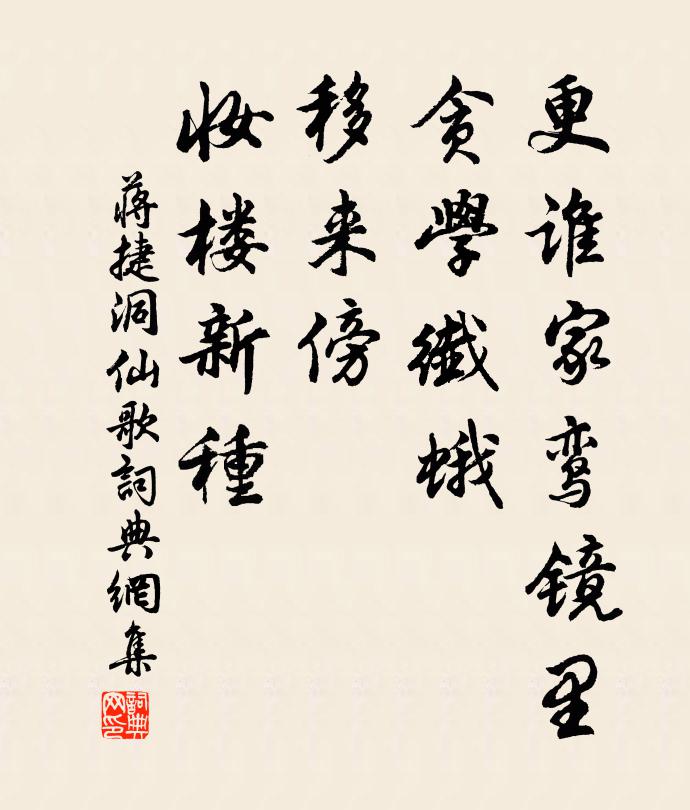 更谁家鸾镜里
贪學纖蛾
移来傍
妆楼新種
蒋捷洞仙歌詞典網集
詞典网印